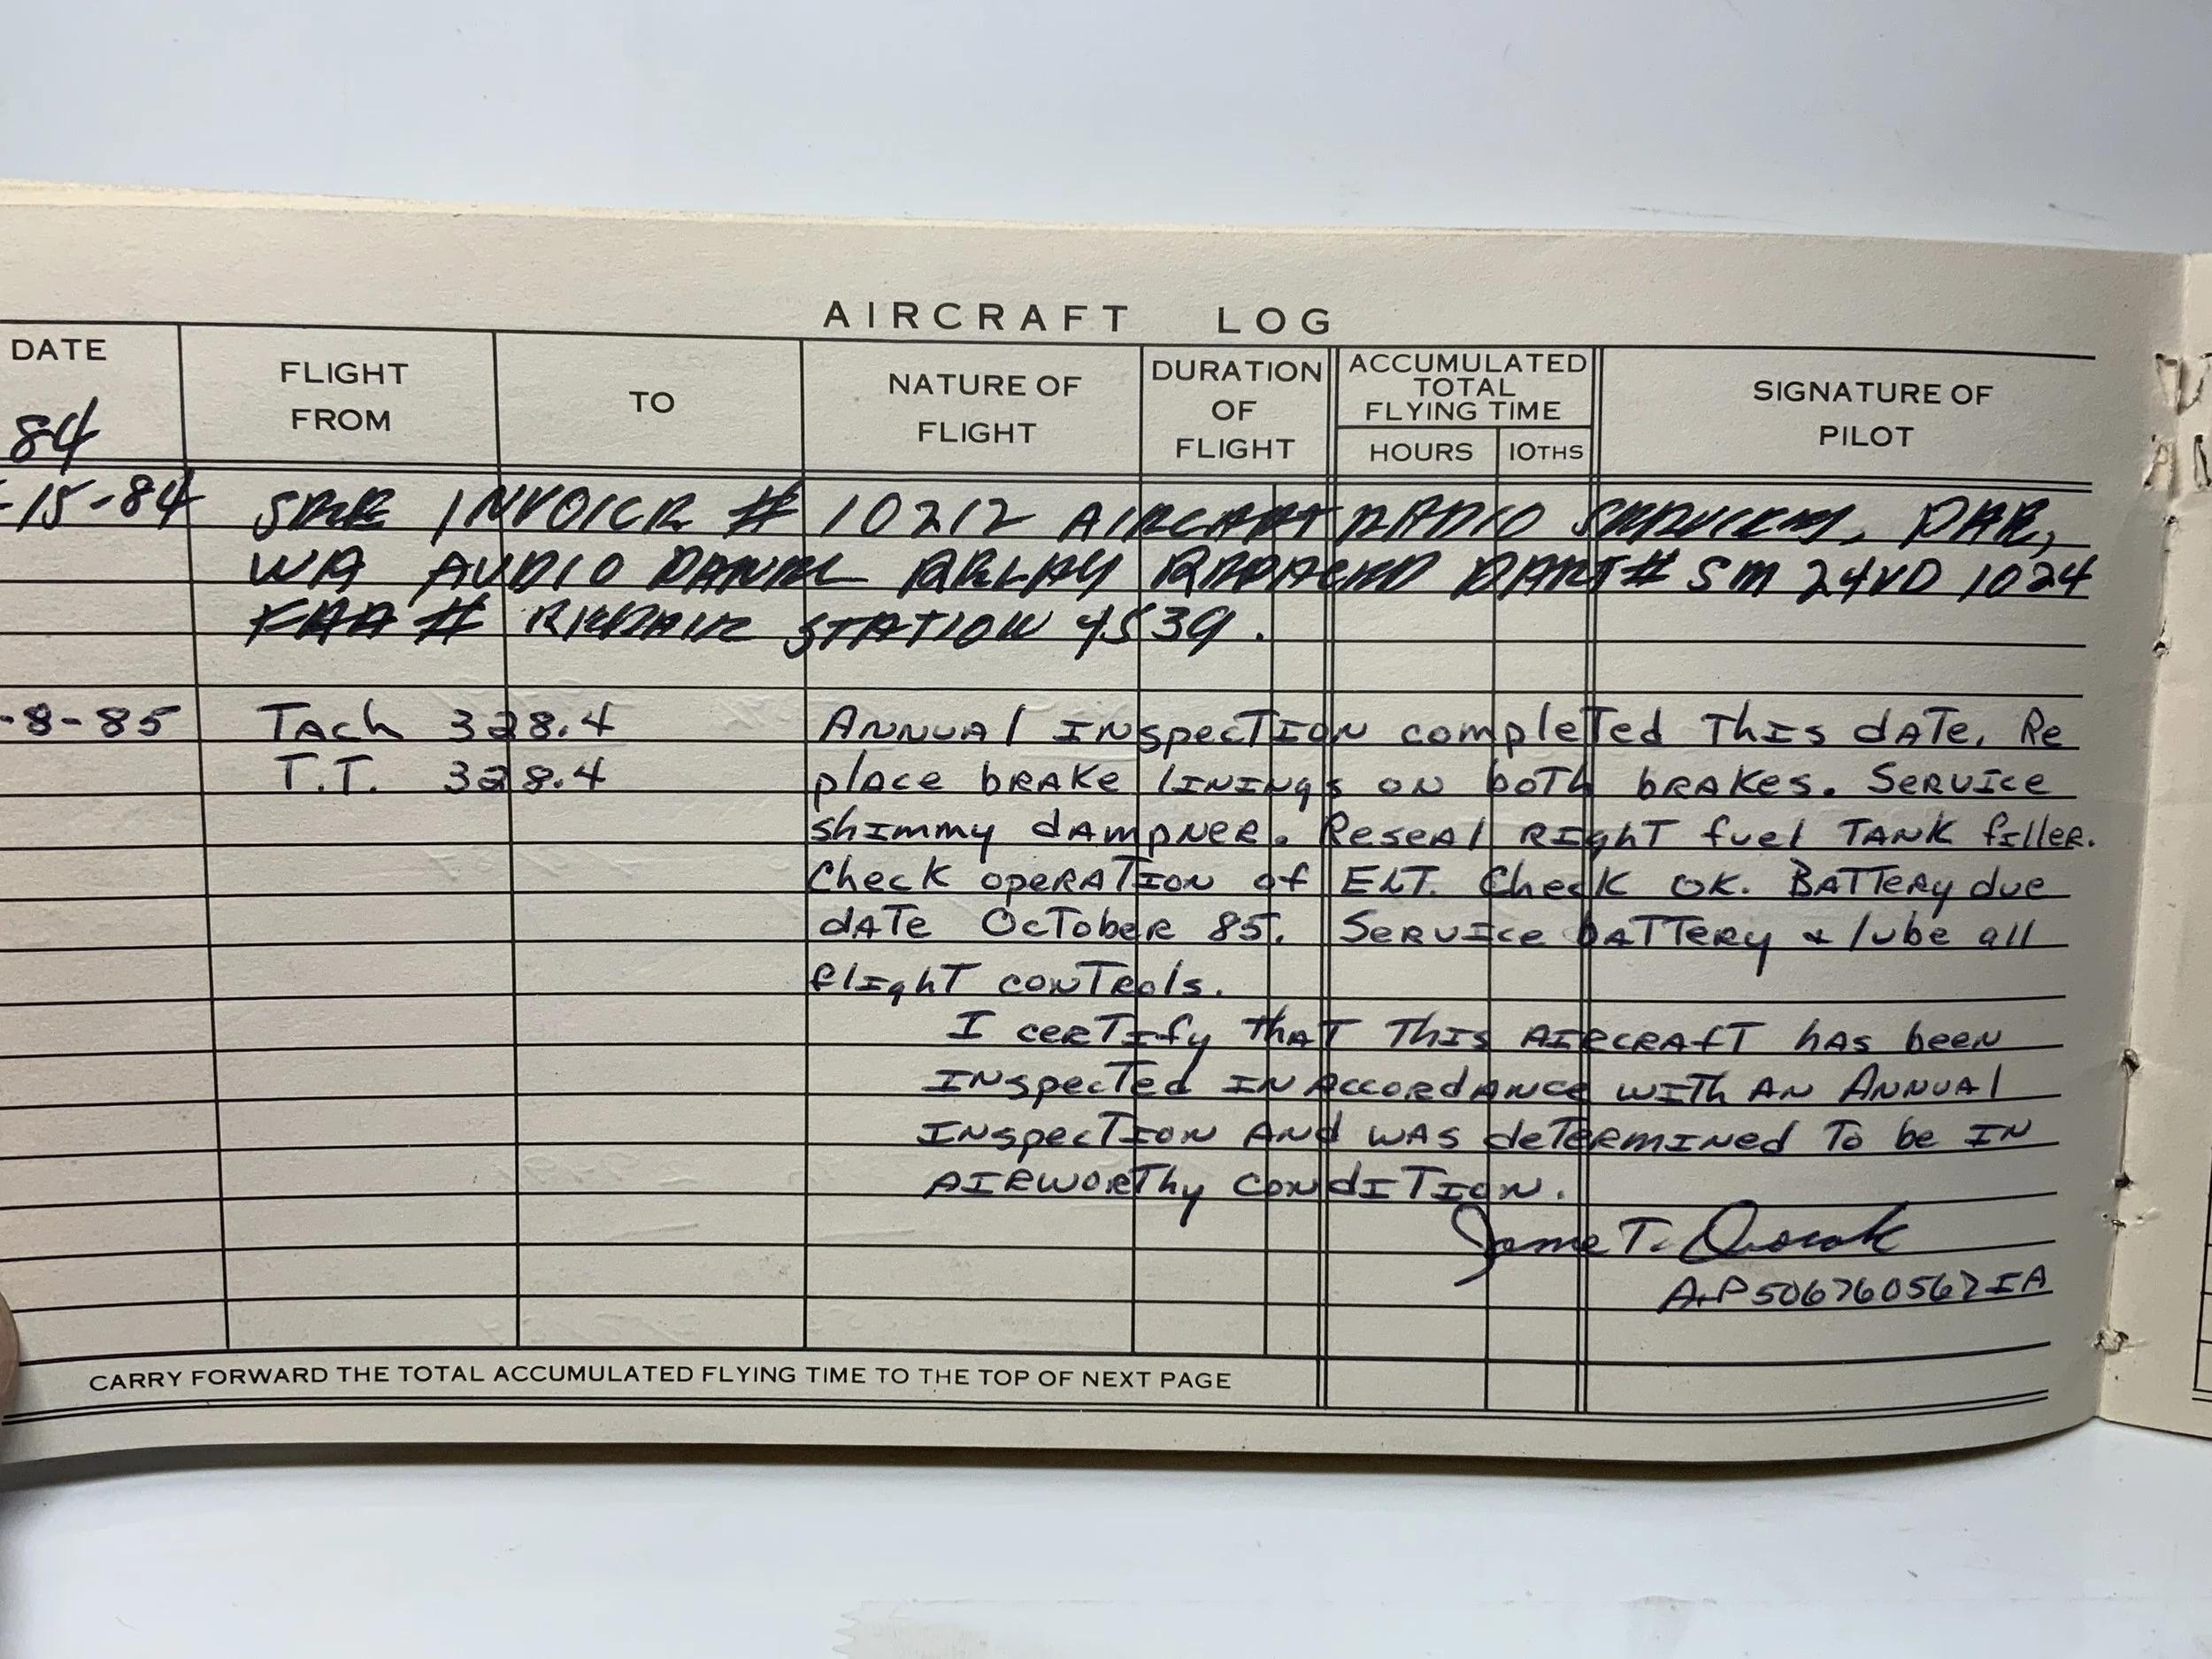 AIRCRAFT LOG
DATE
84
FLIGHT FROM
TO
NATURE OF FLIGHT
DURATION OF FLIGHT
ACCUMULATED TOTAL FLYING TIME
HOURS
10THS
SIGNATURE OF PILOT
-15-84 SEE INVOICE # 10212 AIRCRAFT RADIO SERVICES, PAE,
WA AUDIO PANEL RELAY REPLACED PART# SM 24VD 1024
FAA # REPAIR STATION 4539.
-8-85 Tach 328.4 Annual Inspection completed This date. Re
T.T. 328.4 place brake linings on both brakes. Service
shimmy dampner. Reseal Right fuel Tank filler.
Check operation of ELT. Check OK. Battery due
date October 85. Service battery & lube all
flight controls.
I certify that this aircraft has been
Inspected in accordance with an Annual
Inspection and was determined to be in
airworthy condition.
T.
A+P 506760567 IA
CARRY FORWARD THE TOTAL ACCUMULATED FLYING TIME TO THE TOP OF NEXT PAGE